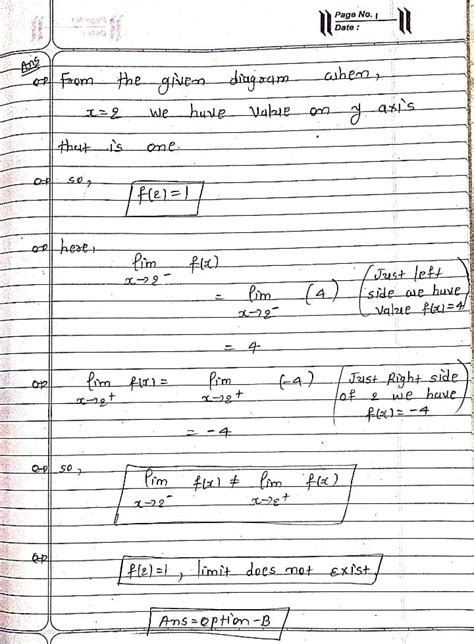 Page No. 1
Date :
Ans
From the given diagram when,
x=2 we have value on y axis
that is one
so,
f(2)=1
here,
lim f(x)
x→2⁻
= lim (4) (Just left side we have value f(x)=4)
x→2⁻
= 4
lim f(x) = lim (-4) (Just Right side of 2 we have f(x)=-4)
x→2⁺ x→2⁺
= -4
so,
lim f(x) ≠ lim f(x)
x→2⁻ x→2⁺
f(2)=1, limit does not exist
Ans=option-B